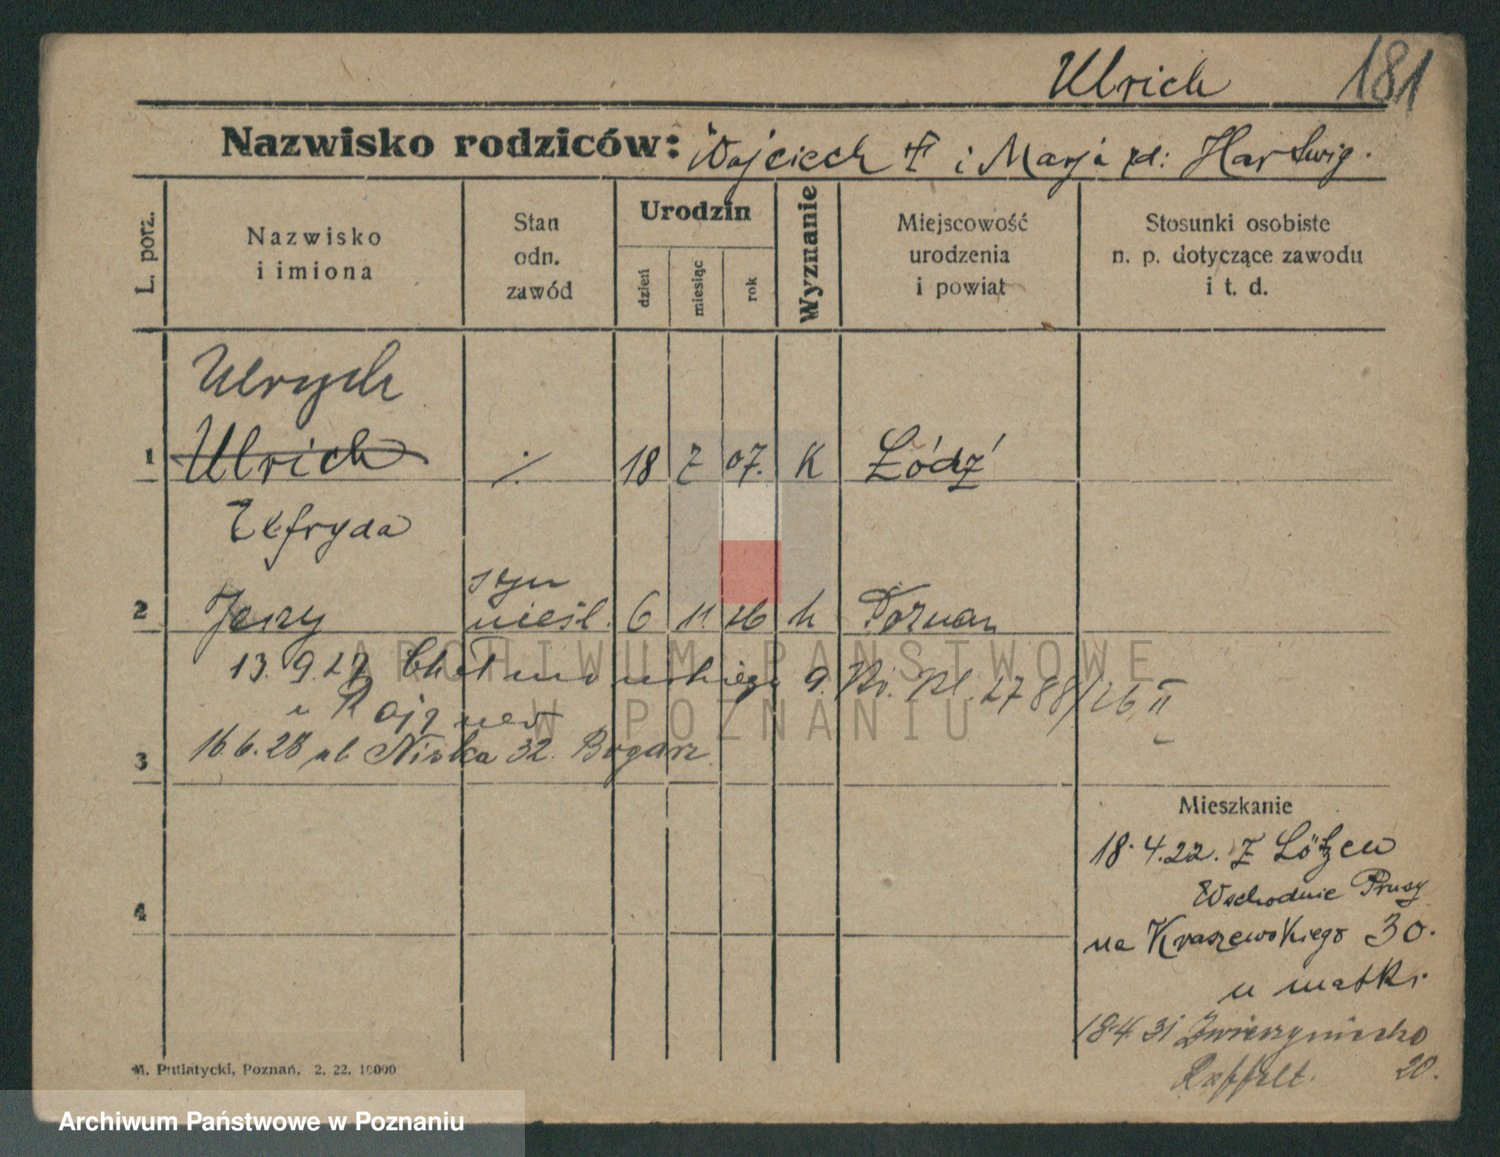 Ulrich 181
Nazwisko rodziców: Wojciech † i Marja zd: Hartwig.
L. porz.
Nazwisko i imiona
Stan odn. zawód
Urodzin
dzień
miesiąc
rok
Wyznanie
Miejscowość urodzenia i powiat
Stosunki osobiste n. p. dotyczące zawodu i t. d.
Ulrych
1 Ulrich ./. 18 7 07. K Łódź
Elfryda
syn
2 Jerzy nieśl. 6 11. 26 k Poznań
13.9.27 Chełmońskiego 9. 2788/26 II
u
16.6.28 ul Niska 32.
3
Mieszkanie
18.4.22. z Lötzen
Wschodnie Prusy
4
na Kraszewskiego 30.
u matki.
18.4 31 Zwierzyniecka
20.
M. Putiatycki, Poznań, 2. 22. 10000
ARCHIWUM PAŃSTWOWE
W POZNANIU
Archiwum Państwowe w Poznaniu